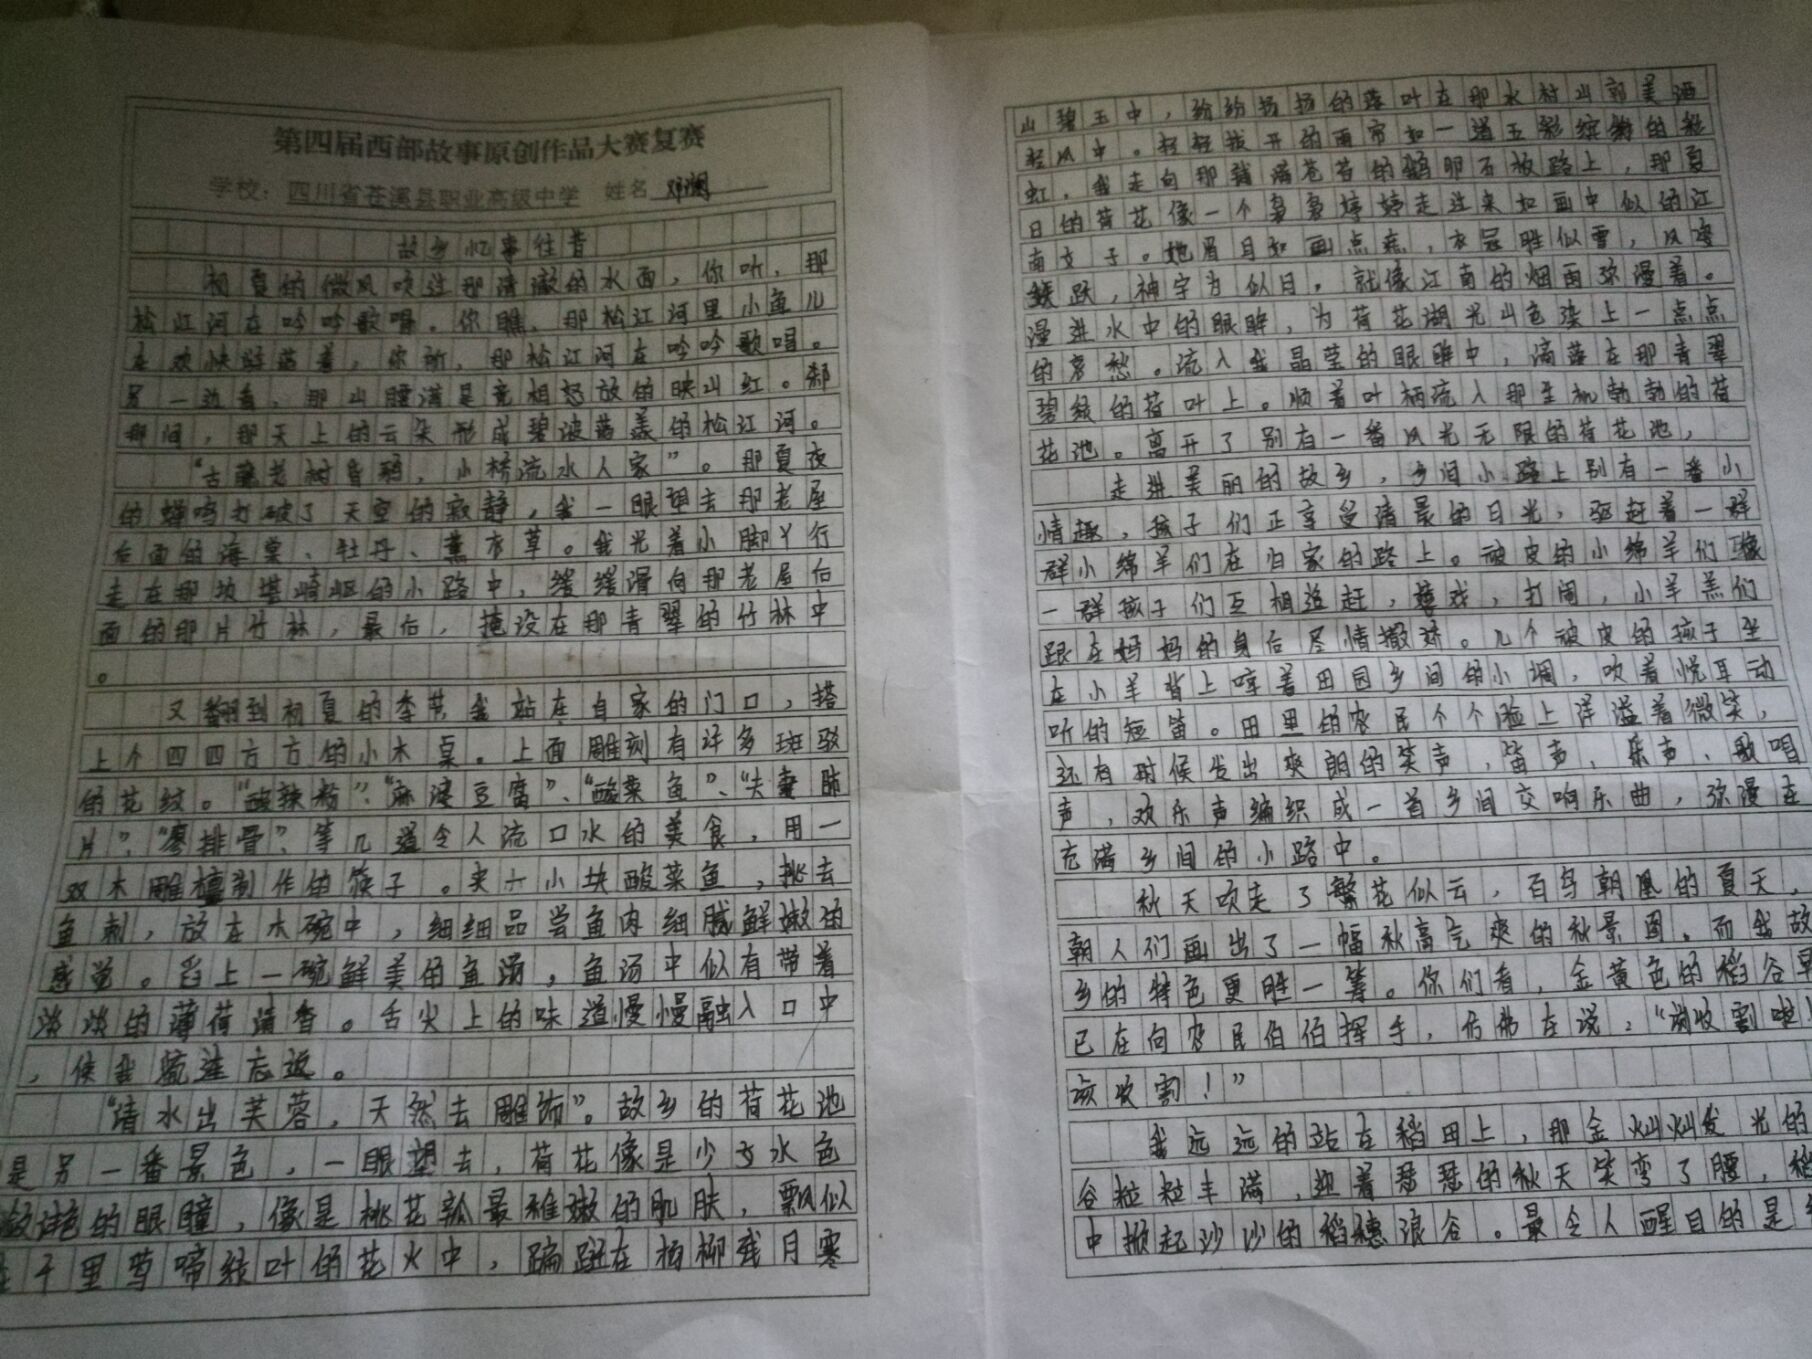 第四届西部故事原创作品大赛复赛
学校：四川省苍溪县职业高级中学 姓名 邓澜
故乡忆事往昔
初夏的微风吹过那清澈的水面，你听，那
松江河在吟吟歌唱。你瞧，那松江河里小鱼儿
在欢快游荡着，你听，那松江河在吟吟歌唱。
另一边看，那山腰满是竞相怒放的映山红。刹
那间，那天上的云朵形成碧波荡漾的松江河。
“古藤老树昏鸦，小桥流水人家”。那夏夜
的蝉鸣打破了天空的寂静，我一眼望去那老屋
后面的海棠、牡丹、薰衣草。我光着小脚丫行
走在那坎堪崎岖的小路中，缓缓滑向那老屋后
面的那片竹林，最后，掩没在那青翠的竹林中
。
又翻到初夏的季节我站在自家的门口，搭
上个四四方方的小木桌。上面雕刻有许多斑驳
的花纹。“酸辣粉”、“麻婆豆腐”、“酸菜鱼”、“夫妻肺
片”、“排骨”、等几道令人流口水的美食，用一
双木雕制作的筷子。夹一小块酸菜鱼，挑去
鱼刺，放在木碗中，细细品尝鱼肉细腻鲜嫩的
感觉。舀上一碗鲜美的鱼汤，鱼汤中似有带着
淡淡的薄荷清香。舌尖上的味道慢慢融入口中
，使我流连忘返。
“清水出芙蓉，天然去雕饰”。故乡的荷花池
是另一番景色，一眼望去，荷花像是少女水色
的眼瞳，像是桃花瓢最稚嫩的肌肤，飘似
千里莺啼绿叶的花火中，蹁跹在杨柳残月寒
山碧玉中，纷纷扬扬的落叶在那水村山郭美酒
轻风中。轻轻拔开的雨帘如一道五彩缤纷的彩
虹，我走向那铺满苍苔的鹅卵石放路上，那夏
日的荷花像一个袅袅婷婷走过来如画中似的江
南女子。她眉目如画点痣，衣冠胜似雪，风姿
跃，神字为似目，就像江南的烟雨弥漫着。
漫进水中的眼眸，为荷花湖光山色染上一点点
的哀愁。流入我晶莹的眼眸中，滴落在那青翠
碧绿的荷叶上。顺着叶柄流入那生机勃勃的荷
花池。离开了别有一番风光无限的荷花池，
走进美丽的故乡，乡间小路上别有一番小
情趣，孩子们正享受清晨的日光，驱赶着一群
群小绵羊们在归家的路上。被皮的小绵羊们像
一群孩子们互相追赶，嬉戏，打闹，小羊羔们
跟在妈妈的身后尽情撒娇。几个被皮的孩子坐
在小羊背上哼着田园乡间的小调，吹着悦耳动
听的短笛。田里的农民个个脸上洋溢着微笑，
还有时候发出爽朗的笑声，笛声、乐声、歌唱
声，欢乐声编织成一首乡间交响乐曲，弥漫在
充满乡间的小路中。
秋天吹走了繁花似云，百鸟朝凰的夏天，
朝人们画出了一幅秋高气爽的秋景图。而我故
乡的特色更胜一筹。你们看，金黄色的稻谷早
已在向农民伯伯挥手，仿佛在说，“该收割啦！
该收割！”
我远远的站在稻田上，那金灿灿发光的
谷粒粒丰满，迎着瑟瑟的秋天笑弯了腰，
中掀起沙沙的稻穗浪谷。最令人醒目的是